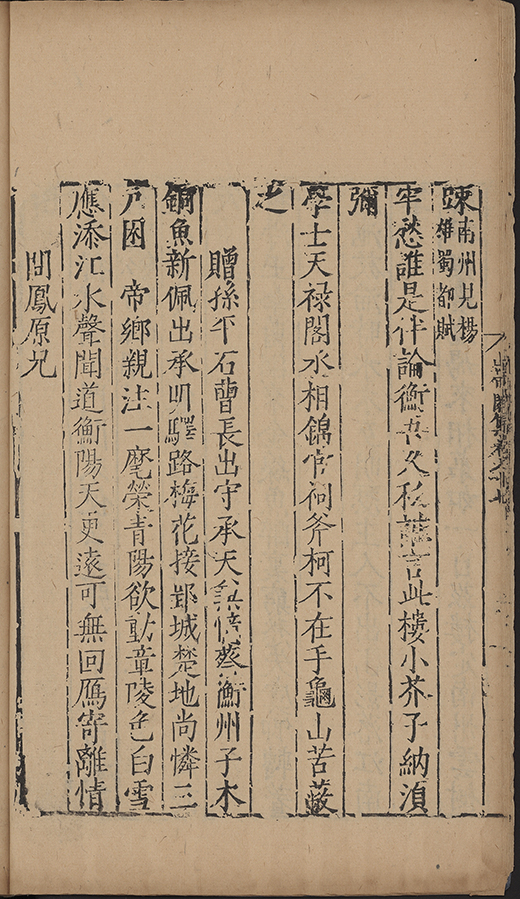 竦南州見楊
雄蜀都賦
牢愁誰是伴論衡吾久私誰言此樓小芥子納湏
彌
學士天禄閣水相錦官祠斧柯不在手龜山苦蔽
之
贈孫平石曹長出守承天兼懷蔡衡州子木
銅魚新佩出承明驛路梅花接郢城楚地尚憐三
户困 帝鄉親注一麾榮青陽欲動章陵色白雪
應添江水聲聞道衡陽天更遠可無回鴈寄離情
問鳳原兄